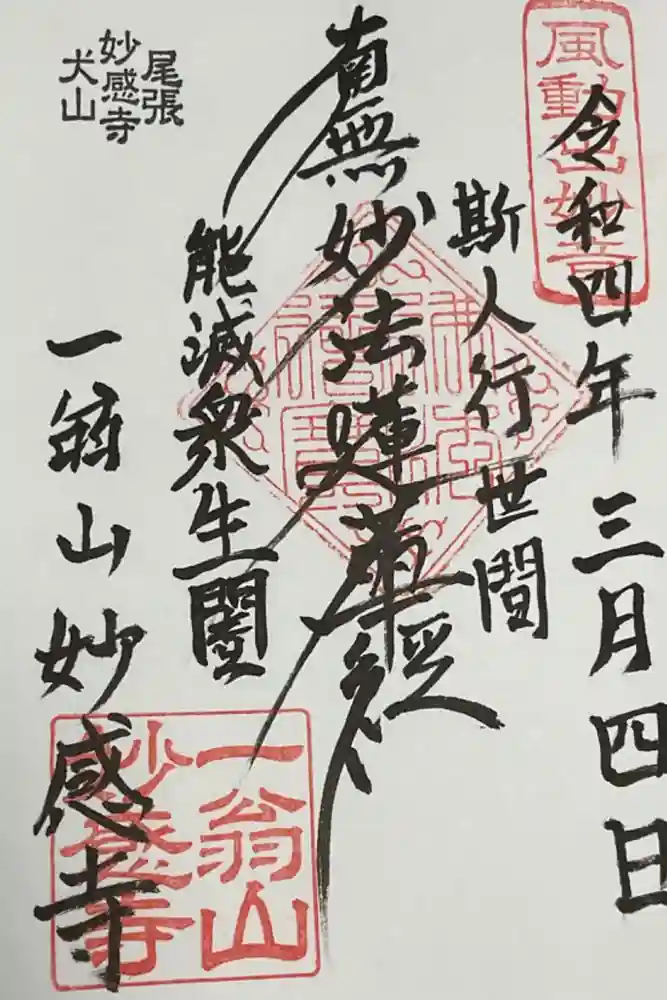 令和四年三月四日
風動出妙音
斯人行世間
南無妙法蓮華経
能滅衆生闇
一翁山妙感寺
尾張
妙感寺
犬山
一翁山
妙感寺